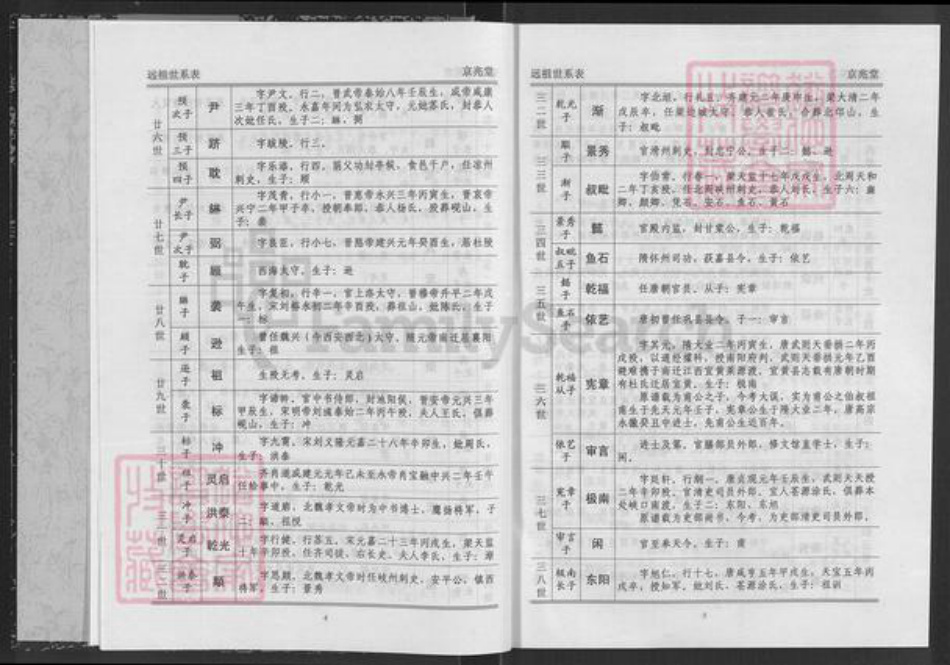 远祖世系表
京兆堂
廿六世
预次子
尹
字尹文，行二，晋武帝泰始八年壬辰生，成帝咸康
三年丁酉殁。永嘉年间为弘农太守，元妣苏氏，封恭人
次妣任氏，生子二：綝、弼
预三子
跻
字
行三。
预四子
耽
字乐源，行四，荫父功封亭候，食邑千户，任凉州
刺史，生子：顺
廿七世
尹长子
綝
字茂青，行小一，晋愍帝永兴三年丙寅生，晋哀帝
兴宁二年甲子卒，授朝奉郎，恭人杨氏，殁葬岘山，生
子：袭
尹次子
弼
字良臣，行小七，晋愍帝建兴元年癸酉生，居杜陵
耽子
顾
西海太守，生子：逊
廿八世
綝子
袭
字复初，行辛一，官上洛太守，晋穆帝升平二年戊
午生，宋刘裕永初二年辛酉殁，葬祖山，妣陈氏，生子
一：标
顾子
逊
曾任魏兴（今西安西北）太守，随元帝南迁居襄阳
生子：祖
廿九世
逊子
祖
生殁无考，生子：灵启
袭子
标
官中书侍郎，封池阳侯，晋安帝元兴三年
甲辰生，宋明帝刘彧泰始二年丙午殁，夫人王氏，俱葬
岘山，生子：冲
三十世
标子
冲
字九霄，宋刘义隆元嘉二十八年辛卯生，妣周氏，
生子：洪泰
祖子
灵启
齐肖道成建元元年己未至永带肖宝融中兴二年壬午
任给事中，生子：乾光
冲子
洪泰
北魏孝文帝时为中书博士，鹰扬将军，子
二：颙、祖悦
灵启子
乾光
字行健，行苏五，宋元嘉二十三年丙戌生，梁天监
十年辛卯殁，任齐司徒，右长史，夫人李氏，生子：渐
洪泰子
颙
字思颙，北魏孝文帝时任岐州刺史，安平公，镇西
将军，生子：景秀
4
远祖世系表
京兆堂
三二世
乾光子
渐
字北垣，行礼五，齐建元二年庚申生，梁大清二年
戊辰卒，任梁边城太守，恭人崔氏，合葬北邙山，生
子：叔毗
三三世
颙子
景秀
官渭州刺史，封忠宁公，生子二：懿、逊
渐子
叔毗
字伯常，行春一，梁天监十七年戊戌生，北周天和
二年丁亥殁，任北周硖州刺史，恭人刘氏，生子六：廉
卿、颜卿、凭石、安石、鱼石、黄石
三四世
景秀子
懿
官殿内监，封甘棠公，生子：乾福
叔毗五子
鱼石
隋怀州司功，获嘉县令，生子：依艺
三五世
懿子
乾福
任唐朝官员，从子：宪章
鱼石子
依艺
唐初曾任巩县县令，子一：审言
三六世
乾福从子
宪章
字其元，隋大业二年丙寅生，唐武则天垂拱二年丙
戌殁，以通经耀科，授南阳府判，武则天垂拱元年乙酉
避难携子南迁江西宜黄莱源渡，宜黄县志载有唐朝时期
有杜氏迁居宜黄，生子：极南
原谱载为甫公之子，今考大误，实为甫公之伯叔祖
甫生于先天元年壬子，宪章公生于隋大业二年，唐高宗
永徽癸丑中进士，先甫公生近百年。
依艺子
审言
进士及第，官膳部员外郎，修文馆直学士，生子：
闲，
三七世
宪章子
极南
字延轩，行朝一，唐贞观元年壬辰生，武则天天授
二年辛卯殁，官清吏司员外郎，宜人苍源涂氏，俱葬本
处峡口南渡，生子二：东阳、东旭
原谱载为吏部尚书，今考，为吏部清吏司员外郎，
审言子
闲
官至奉天令，生子：甫
三八世
极南长子
东阳
字旭仁，行十七，唐咸亨五年甲戌生，天宝五年丙
戌卒，授知军，妣刘氏、苍源涂氏，生子：祖训
5
FamilySearch